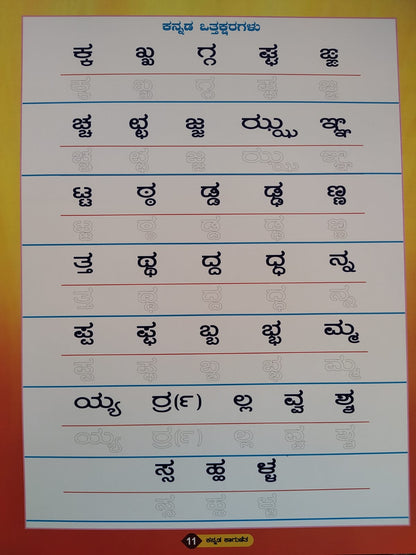 ಕನ್ನಡ ಒತ್ತಕ್ಷರಗಳು
ಕ್ಕ ಖ್ಖ ಗ್ಗ ಘ್ಘ ಙ್ಙ
ಕ್ಕ ಖ್ಖ ಗ್ಗ ಘ್ಘ ಙ್ಙ
ಚ್ಚ ಛ್ಛ ಜ್ಜ ಝ್ಝ ಞ್ಞ
ಚ್ಚ ಛ್ಛ ಜ್ಜ ಝ್ಝ ಞ್ಞ
ಟ್ಟ ಠ್ಠ ಡ್ಡ ಢ್ಢ ಣ್ಣ
ಟ್ಟ ಠ್ಠ ಡ್ಡ ಢ್ಢ ಣ್ಣ
ತ್ತ ಥ್ಥ ದ್ದ ಧ್ಧ ನ್ನ
ತ್ತ ಥ್ಥ ದ್ದ ಧ್ಧ ನ್ನ
ಪ್ಪ ಫ್ಫ ಬ್ಬ ಭ್ಭ ಮ್ಮ
ಪ್ಪ ಫ್ಫ ಬ್ಬ ಭ್ಭ ಮ್ಮ
ಯ್ಯ ರ್ರ(೯) ಲ್ಲ ವ್ವ
ಯ್ಯ ರ್ರ(೯) ಲ್ಲ ವ್ವ
ಸ್ಸ ಹ್ಹ ಳ್ಳ
ಸ್ಸ ಹ್ಹ ಳ್ಳ
11 ಕನ್ನಡ ಕಾಗುಣಿತ